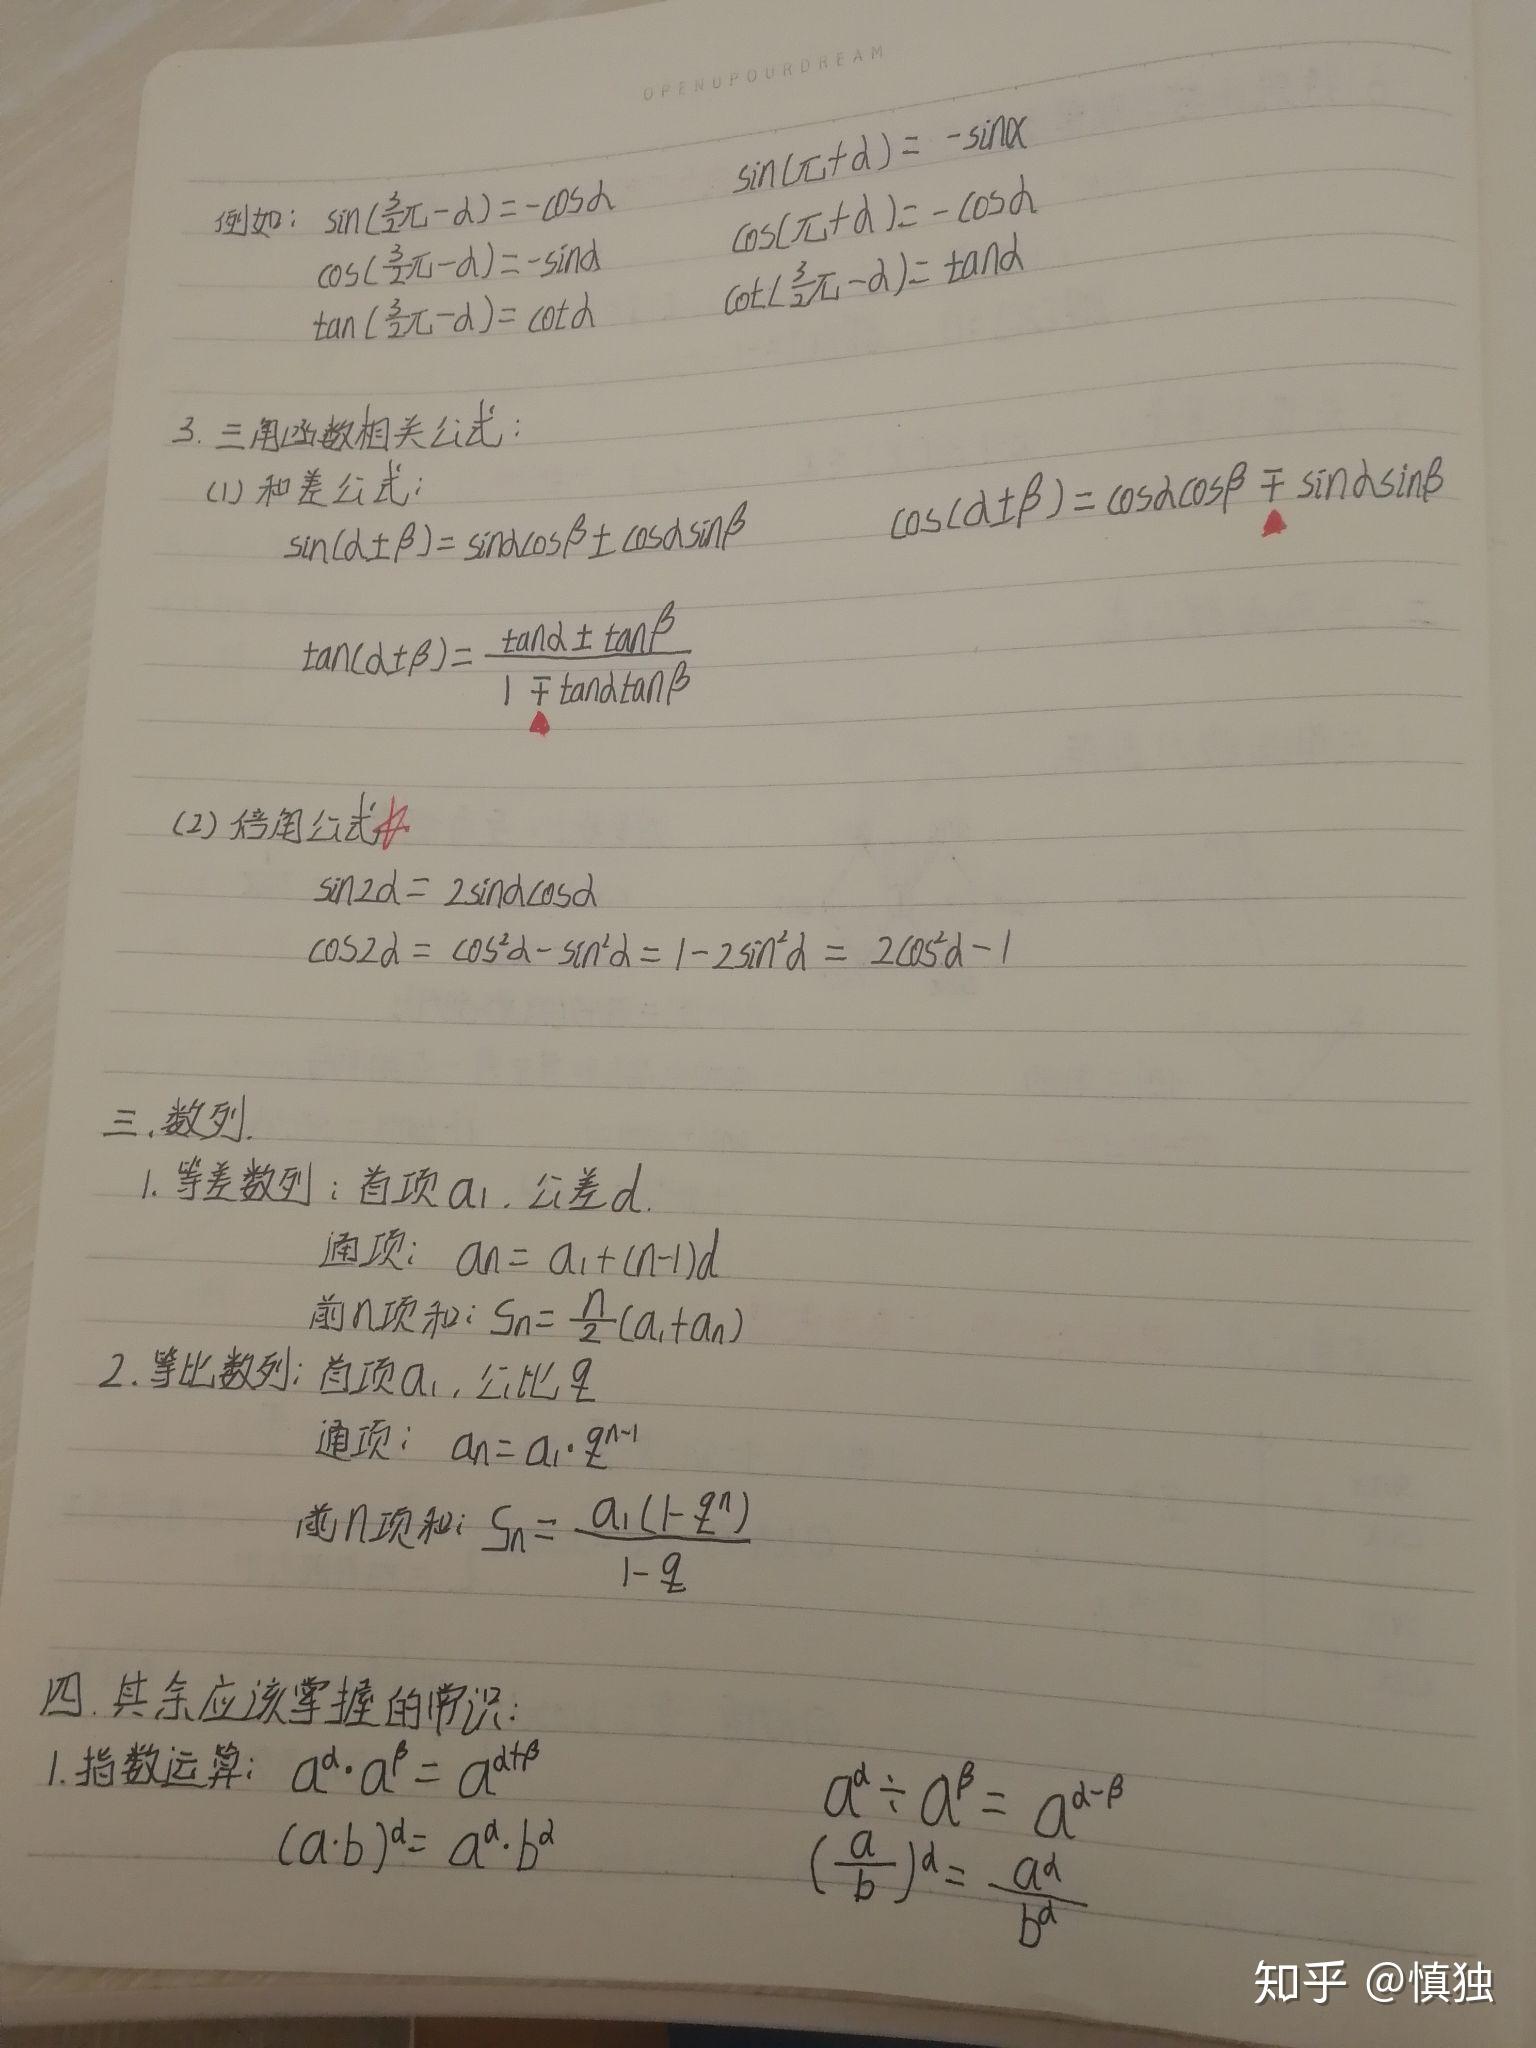 OPENUPOURDREAM
例如: sin(3/2π-α)=-cosα    sin(π+α)=-sinα
cos(3/2π-α)=-sinα    cos(π+α)=-cosα
tan(3/2π-α)=cotα    cot(3/2π-α)=tanα
3. 三角函数相关公式:
(1) 和差公式:
sin(α±β)=sinαcosβ±cosαsinβ    cos(α±β)=cosαcosβ∓sinαsinβ
tan(α±β)=(tanα±tanβ)/(1∓tanαtanβ)
(2) 倍角公式☆
sin2α=2sinαcosα
cos2α=cos²α-sin²α=1-2sin²α=2cos²α-1
三.数列.
1. 等差数列: 首项a₁. 公差d.
通项: aₙ=a₁+(n-1)d
前n项和: Sₙ=n/2(a₁+aₙ)
2. 等比数列: 首项a₁, 公比q
通项: aₙ=a₁·qⁿ⁻¹
前n项和: Sₙ=a₁(1-qⁿ)/(1-q)
四. 其余应该掌握的常识:
1. 指数运算: a^α·a^β=a^(α+β)    a^α÷a^β=a^(α-β)
(a·b)^α=a^α·b^α    (a/b)^α=a^α/b^α
知乎 @慎独